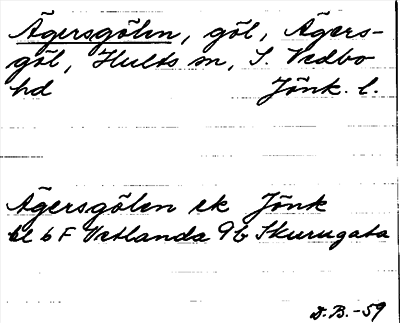 Ägersgölen, göl, Ägers-
göl, Hults sn, S. Vedbo
hd Jönk. l.
Ägersgölen ek Jönk
bl 6 F Vetlanda 9b Skurugata
D.B.-59